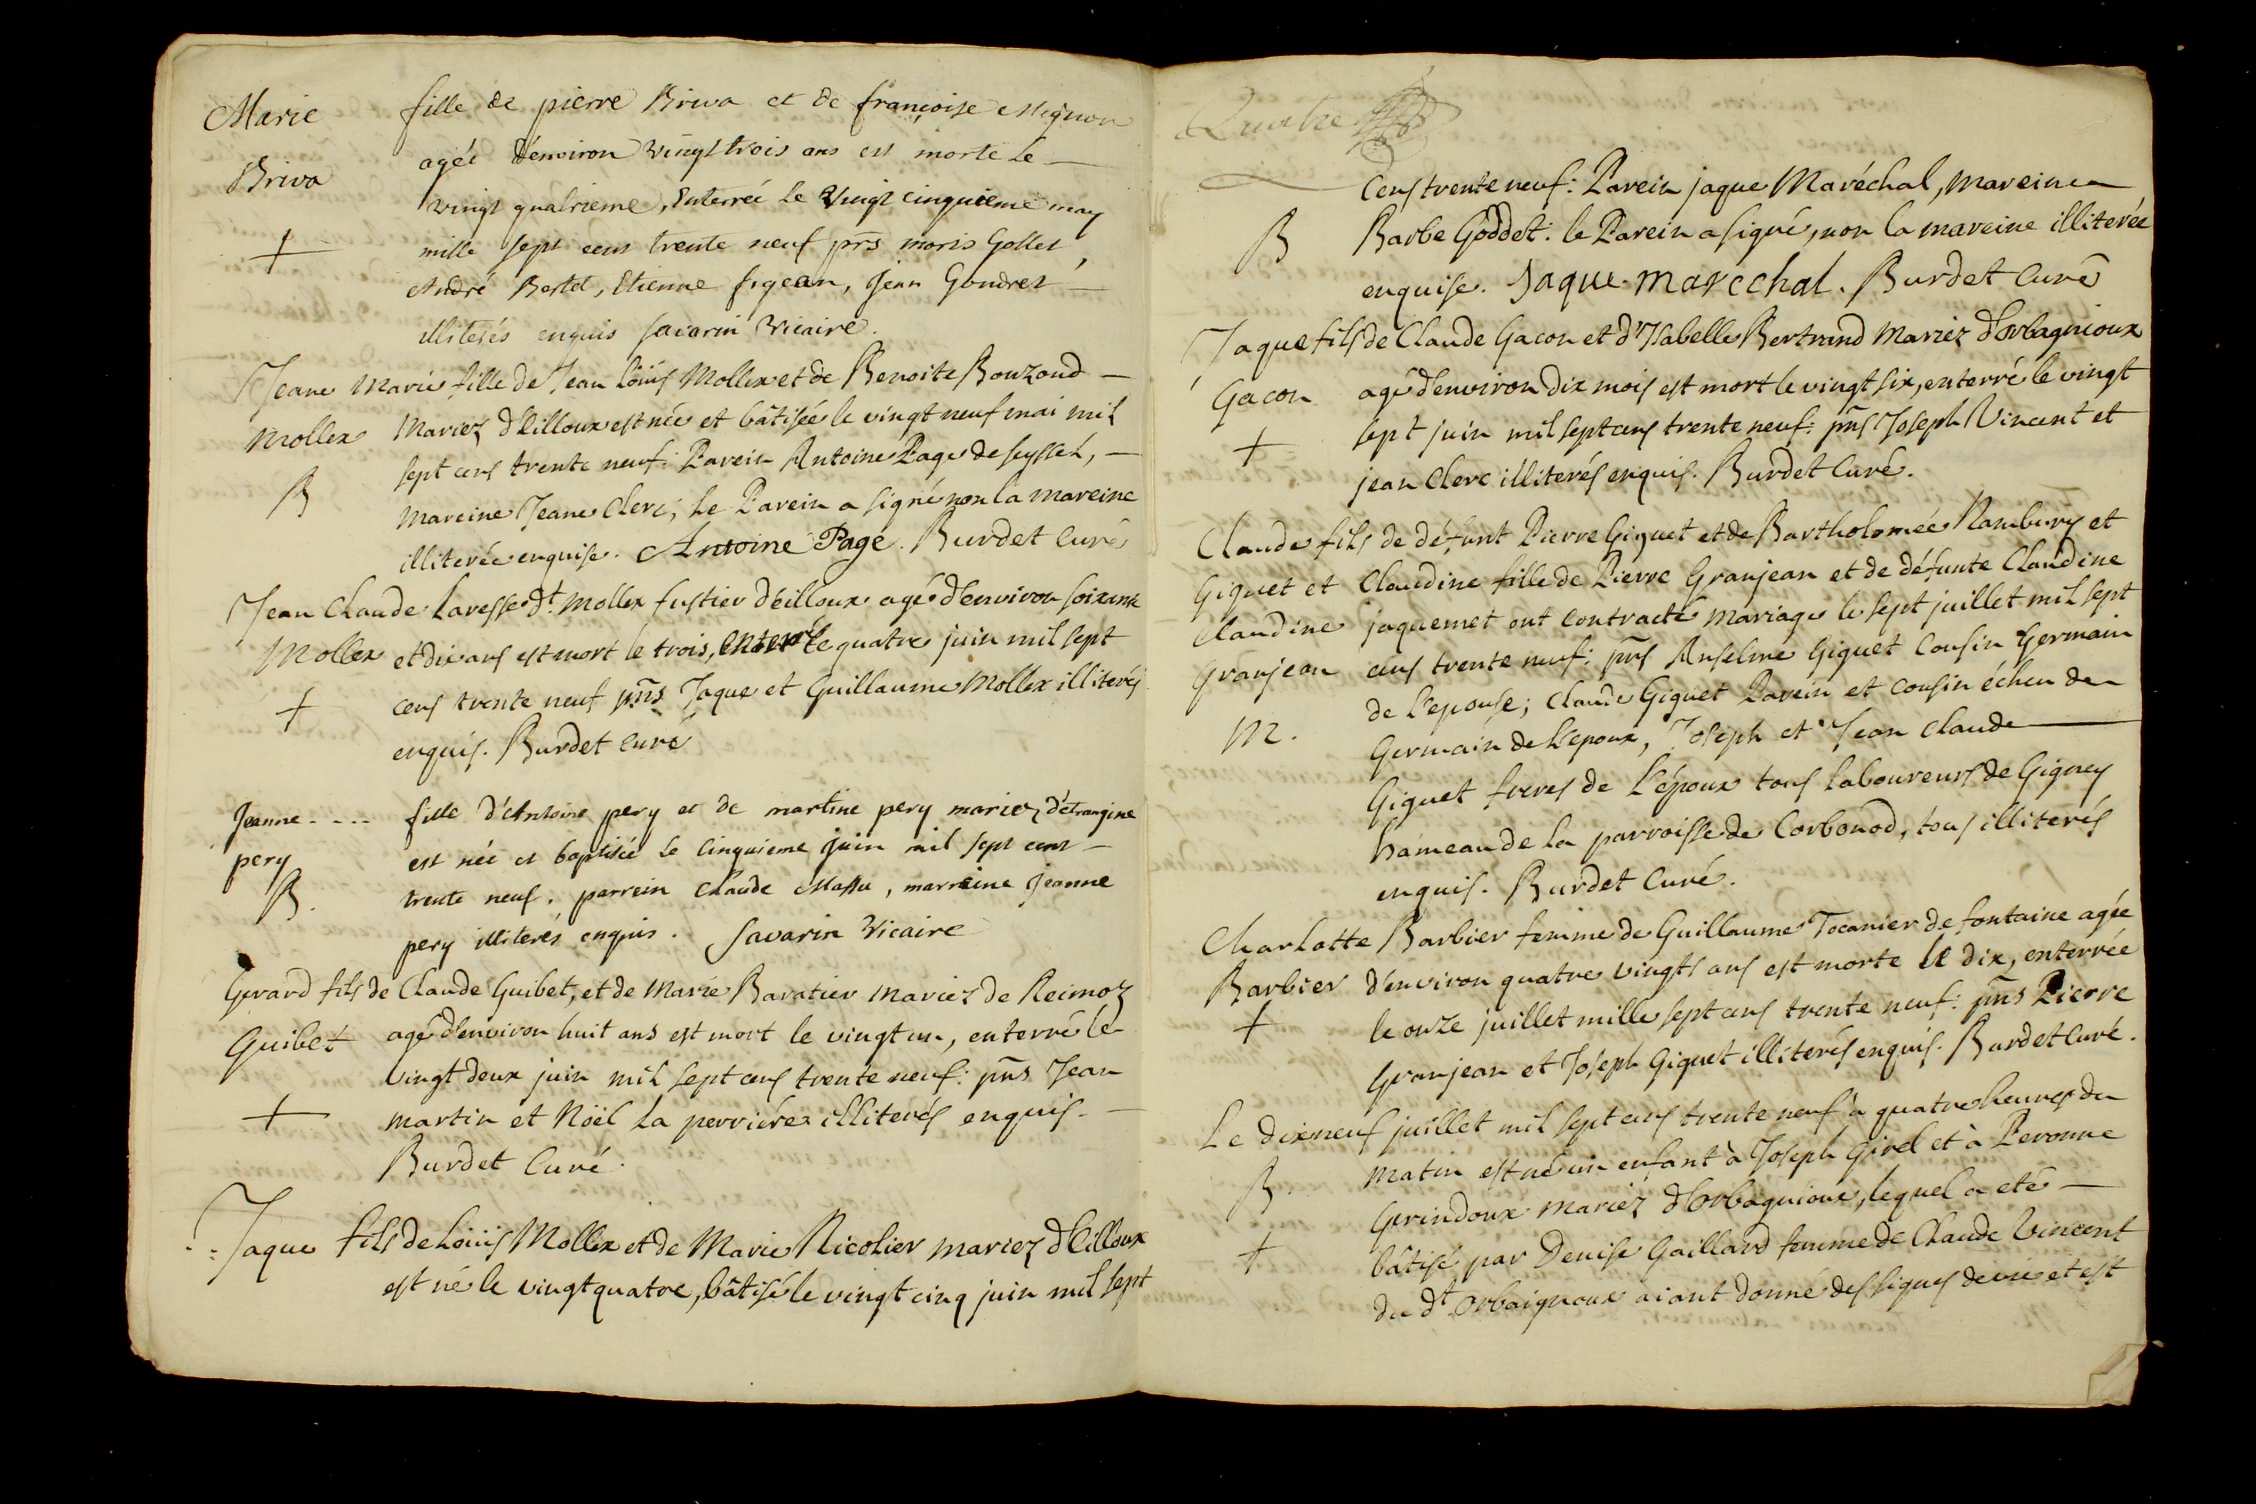 Marie fille de pierre Briva et de françoise Mignon
Briva agée d'environ vingt trois ans est morte le
vingt quatrieme, enterrée le vingt cinquieme may
+ mille sept cens trente neuf prs moris Gollet,
André Bertet, Etienne figean, Jean Gondret
illiterés enquis Savarin Vicaire.
Jeane Marie fille de Jean Loüis Mollex et de Benoite Bouzond
Mollex Mariez d'Eilloux est née et bâtisée le vingt neuf mai mil
sept cens trente neuf: Parein Antoine Page de seyssel,
B Mareine Jeane Clerc; Le Parein a signé non la mareine
illiterée enquise. Antoine Page. Burdet Curé
Jean Claude Laresse dt. Mollex fustier d'éilloux agé d'environ soixante
Mollex et dix ans est mort le trois, enterré le quatre juin mil sept
+ cens trente neuf pñs Jaque et Guillaume Mollex illiterés
enquis. Burdet curé
Jeanne.... fille d'Antoine pery et de martine pery mariez d'étrangine
pery est née et baptisée le cinquieme juin mil sept cens
B. trente neuf. parrein Claude Massu, marreine Jeanne
pery illiterés enquis. Savarin Vicaire
Gerard fils de Claude Guibet, et de Marie Baratier mariez de Reimoz
Guibet agé d'environ huit ans est mort le vingt un, enterré le
vingt deux juin mil sept cens trente neuf: pñs Jean
+ martin et Nöel la perriére illiterés enquis.
Burdet Curé.
Jaque fils de Loüis Mollex et de Marie Nicolier mariez d'Eilloux
est né le vingt quatre, bâtisé le vingt cinq juin mil sept
Quatre
cens trente neuf: Parein jaque Maréchal, mareine
B Barbe Goddet. le Parein a signé, non la mareine illiterée
enquise. Jaque marechal. Burdet Curé
Jaque fils de Claude Gacon et d'Isabelle Bertrand Mariez d'Orbagnioux
Gacon agé d'environ dix mois est mort le vingt six, enterré le vingt
+ sept juin mil sept cens trente neuf: pñs Joseph Vincent et
jean Clerc illiterés enquis. Burdet Curé.
Claude fils de défunt Pierre Giguet et de Bartholomée Rambury et
Giguet et Claudine fille de Pierre Granjean et de défunte Claudine
Claudine jaquemet ont contracté mariage le sept juillet mil sept
Granjean cens trente neuf: pñs Anselme Giguet Cousin Germain
de l'epouse; Claude Giguet Parein et cousin écheu de
M. Germain de l'epoux, Joseph et Jean Claude
Giguet freres de l'époux tous laboureurs de Gigney
hameau de la parroisse de Corbonod, tous illiterés
enquis. Burdet Curé.
Charlotte Barbier femme de Guillaume Tocanier de fontaine agée
Barbier d'environ quatre vingts ans est morte le dix, enterrée
+ le onze juillet mille sept cens trente neuf: pñs Pierre
Granjean et Joseph Giguet illiterés enquis. Burdet Curé.
Le dixneuf juillet mil sept cens trente neuf à quatre heures du
B. matin est né un enfant à Joseph Girel et à Peronne
Grindoux mariez d'Orbagnioux, lequel a eté
+ bâtisé par Denise Gaillard femme de Claude Vincent
du dt Orbaignoux aiant donné des signes de vie et est